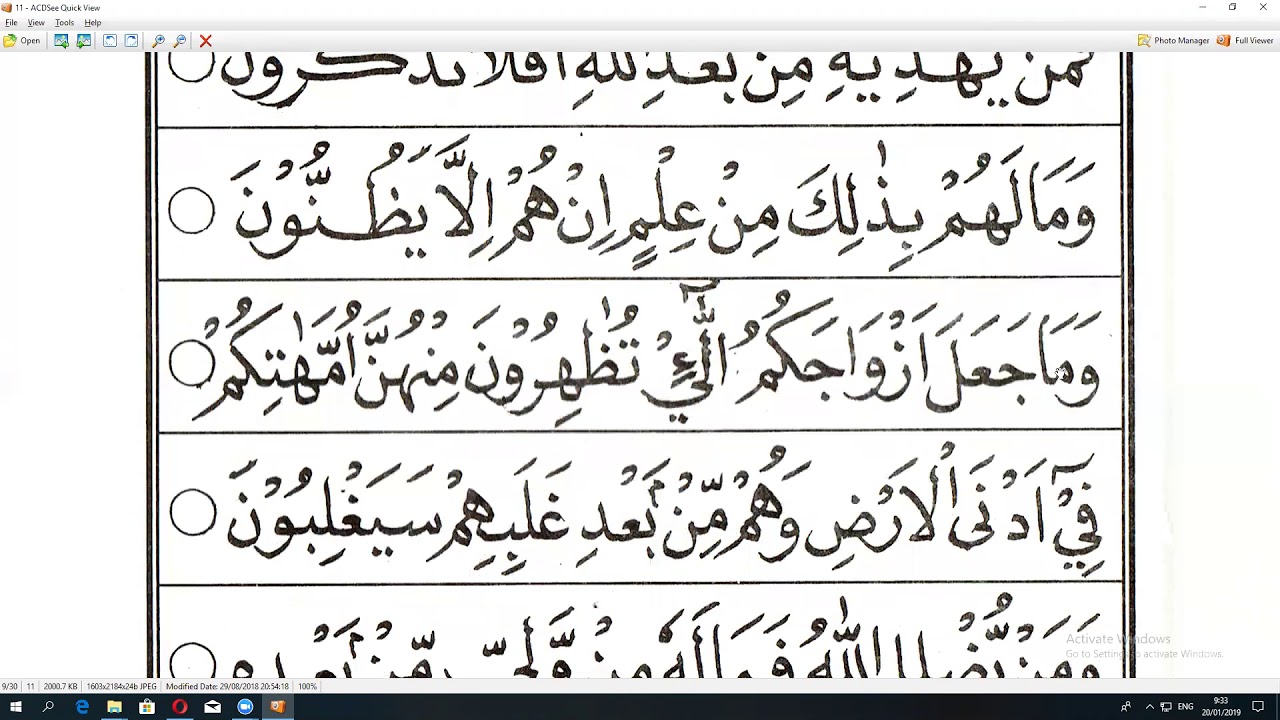 11 - ACDSee Quick View
File View Tools Help
Open Photo Manager Full Viewer
فَمَنْ يَهْدِيْهِ مِنْ بَعْدِ اللهِ اَفَلَا تَذَكَّرُوْنَ
وَمَا لَهُمْ بِذٰلِكَ مِنْ عِلْمٍ اِنْ هُمْ اِلَّا يَظُنُّوْنَ
وَمَا جَعَلَ اَزْوَاجَكُمُ الّٰٓـِٔيْ تُظٰهِرُوْنَ مِنْهُنَّ اُمَّهٰتِكُمْ
فِيْٓ اَدْنَى الْاَرْضِ وَهُمْ مِّنْۢ بَعْدِ غَلَبِهِمْ سَيَغْلِبُوْنَ
وَمَنْ يُّضْلِلِ اللّٰهُ فَمَا لَهٗ مِنْ وَّلِيٍّ مِّنْۢ بَعْدِهٖ
Activate Windows
Go to Settings to activate Windows.
9/30 11 2000.7 KB 1603x2184x24b JPEG Modified Date: 29/08/2018 20:54:18 100%
ENG 9:33
20/01/2019